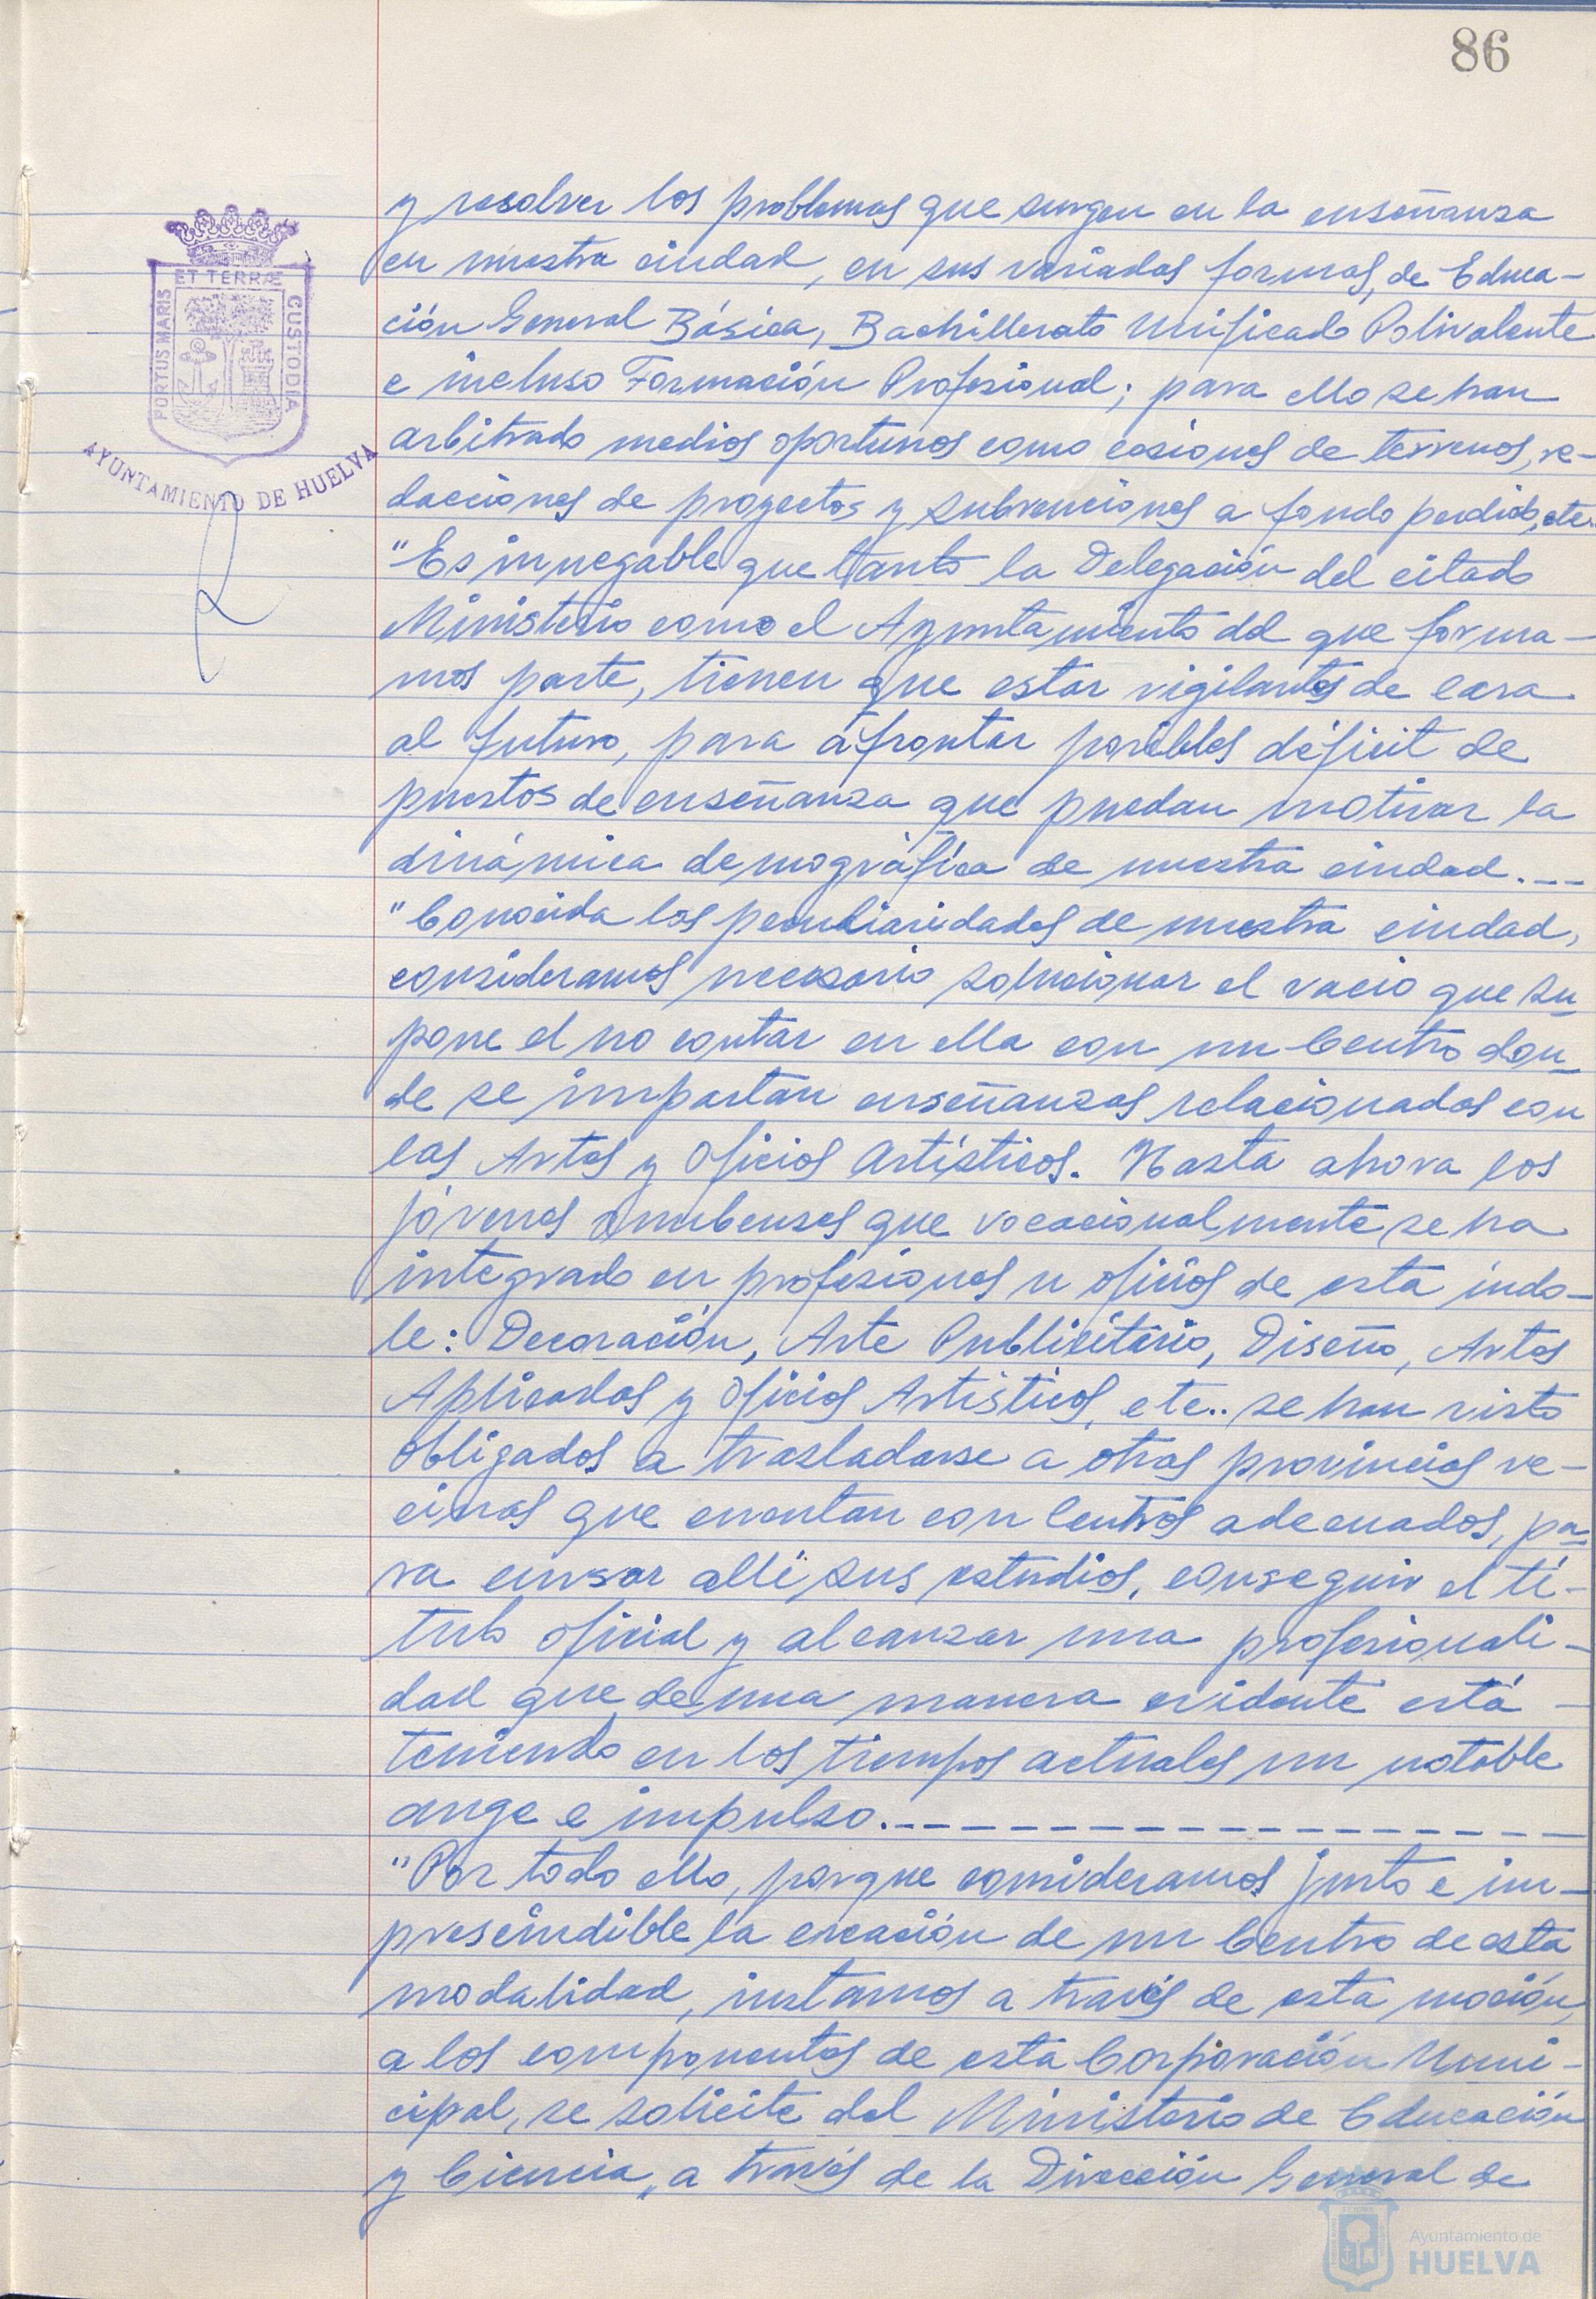 86
y resolver los problemas que surgen en la enseñanza
en nuestra ciudad, en sus variadas formas, de Educa-
ción General Básica, Bachillerato Unificado Polivalente
e incluso Formación Profesional; para ello se han
arbitrado medios oportunos como cesiones de terrenos, re-
dacciones de proyectos y subvenciones a fondo perdido, etc.
"Es innegable que tanto la Delegación del citado
Ministerio como el Ayuntamiento del que forma-
mos parte, tienen que estar vigilantes de cara
al futuro, para afrontar posibles déficit de
puestos de enseñanza que puedan motivar la
dinámica demográfica de nuestra ciudad.---
"Conocida las peculiaridades de nuestra ciudad,
consideramos necesario solucionar el vacio que su
pone el no contar en ella con un Centro don
de se impartan enseñanzas relacionadas con
las Artes y Oficios Artísticos. Hasta ahora los
jóvenes onubenses que vocacionalmente se ha
integrado en profesiones u oficios de esta índo-
le: Decoración, Arte Publicitario, Diseño, Artes
Aplicadas y Oficios Artísticos, etc.. se han visto
obligados a trasladarse a otras provincias ve-
cinas que cuentan con Centros adecuados, pa
ra cursar allí sus estudios, conseguir el tí-
tulo oficial y alcanzar una profesionali-
dad que de una manera evidente está -
teniendo en los tiempos actuales un notable
auge e impulso.-------------------
"Por todo ello, porque consideramos justo e im-
prescindible la creación de un Centro de esta
modalidad, instamos a través de esta moción,
a los componentes de esta Corporación Muni-
cipal, se solicite del Ministerio de Educación
y Ciencia, a través de la Dirección General de
ET TERRÆ
PORTUS MARIS
CUSTODIA
AYUNTAMIENTO DE HUELVA
Ayuntamiento de
HUELVA